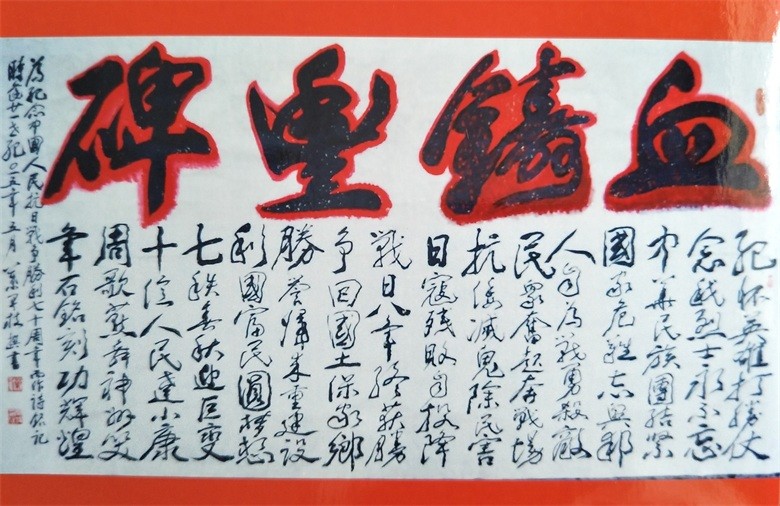 血鑄豐碑
紀怀英雄打勝仗
念我烈士永不忘
中華民族團結紧
國家危難志興邦
人自為戰勇殺敵
民眾奮起奔戰場
抗倭滅鬼除民害
日寇残敗自投降
戰日八年終获勝
爭回國土保家鄉
勝 来重建設
利國富民圓梦想
七秩春秋迎巨變
十億人民達小康
周歌燕舞神州笑
年石銘刻功輝煌
為紀念中國人民抗日戰爭勝利七十周年而作詩銘記
時在廿一世紀 一五年五月 書